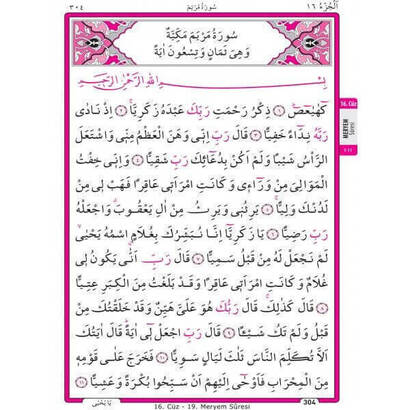 ٣٠٤ سُورَةُ مَرْيَمَ اَلْجُزْءُ ١٦
سُورَةُ مَرْيَمَ مَكِّيَّةٌ
وَهِىَ ثَمَانٍ وَتِسْعُونَ اٰيَةً
بِسْمِ اللّٰهِ الرَّحْمٰنِ الرَّحِيمِ
كٓهٰيٰعٓصٓ ﴿١﴾ ذِكْرُ رَحْمَتِ رَبِّكَ عَبْدَهُ زَكَرِيَّا ﴿٢﴾ اِذْ نَادٰى
رَبَّهُ نِدَٓاءً خَفِيًّا ﴿٣﴾ قَالَ رَبِّ اِنّٖى وَهَنَ الْعَظْمُ مِنّٖى وَاشْتَعَلَ
الرَّأْسُ شَيْبًا وَلَمْ اَكُنْ بِدُعَٓائِكَ رَبِّ شَقِيًّا ﴿٤﴾ وَاِنّٖى خِفْتُ
الْمَوَالِىَ مِنْ وَرَٓاءٖى وَكَانَتِ امْرَاَتٖى عَاقِرًا فَهَبْ لٖى مِنْ
لَدُنْكَ وَلِيًّا ﴿٥﴾ يَرِثُنٖى وَيَرِثُ مِنْ اٰلِ يَعْقُوبَ وَاجْعَلْهُ
رَبِّ رَضِيًّا ﴿٦﴾ يَا زَكَرِيَّٓا اِنَّا نُبَشِّرُكَ بِغُلَامٍ اسْمُهُ يَحْيٰى
لَمْ نَجْعَلْ لَهُ مِنْ قَبْلُ سَمِيًّا ﴿٧﴾ قَالَ رَبِّ اَنّٰى يَكُونُ لٖى
غُلَامٌ وَكَانَتِ امْرَاَتٖى عَاقِرًا وَقَدْ بَلَغْتُ مِنَ الْكِبَرِ عِتِيًّا
﴿٨﴾ قَالَ كَذٰلِكَ قَالَ رَبُّكَ هُوَ عَلَىَّ هَيِّنٌ وَقَدْ خَلَقْتُكَ مِنْ
قَبْلُ وَلَمْ تَكُ شَيْـًٔا ﴿٩﴾ قَالَ رَبِّ اجْعَلْ لٖٓى اٰيَةً قَالَ اٰيَتُكَ
اَلَّا تُكَلِّمَ النَّاسَ ثَلٰثَ لَيَالٍ سَوِيًّا ﴿١٠﴾ فَخَرَجَ عَلٰى قَوْمِهٖ
مِنَ الْمِحْرَابِ فَاَوْحٰٓى اِلَيْهِمْ اَنْ سَبِّحُوا بُكْرَةً وَعَشِيًّا ﴿١١﴾
16. Cüz
MERYEM
Sûresi
يَا يَحْيٰى
16. Cüz - 19. Meryem Sûresi
304